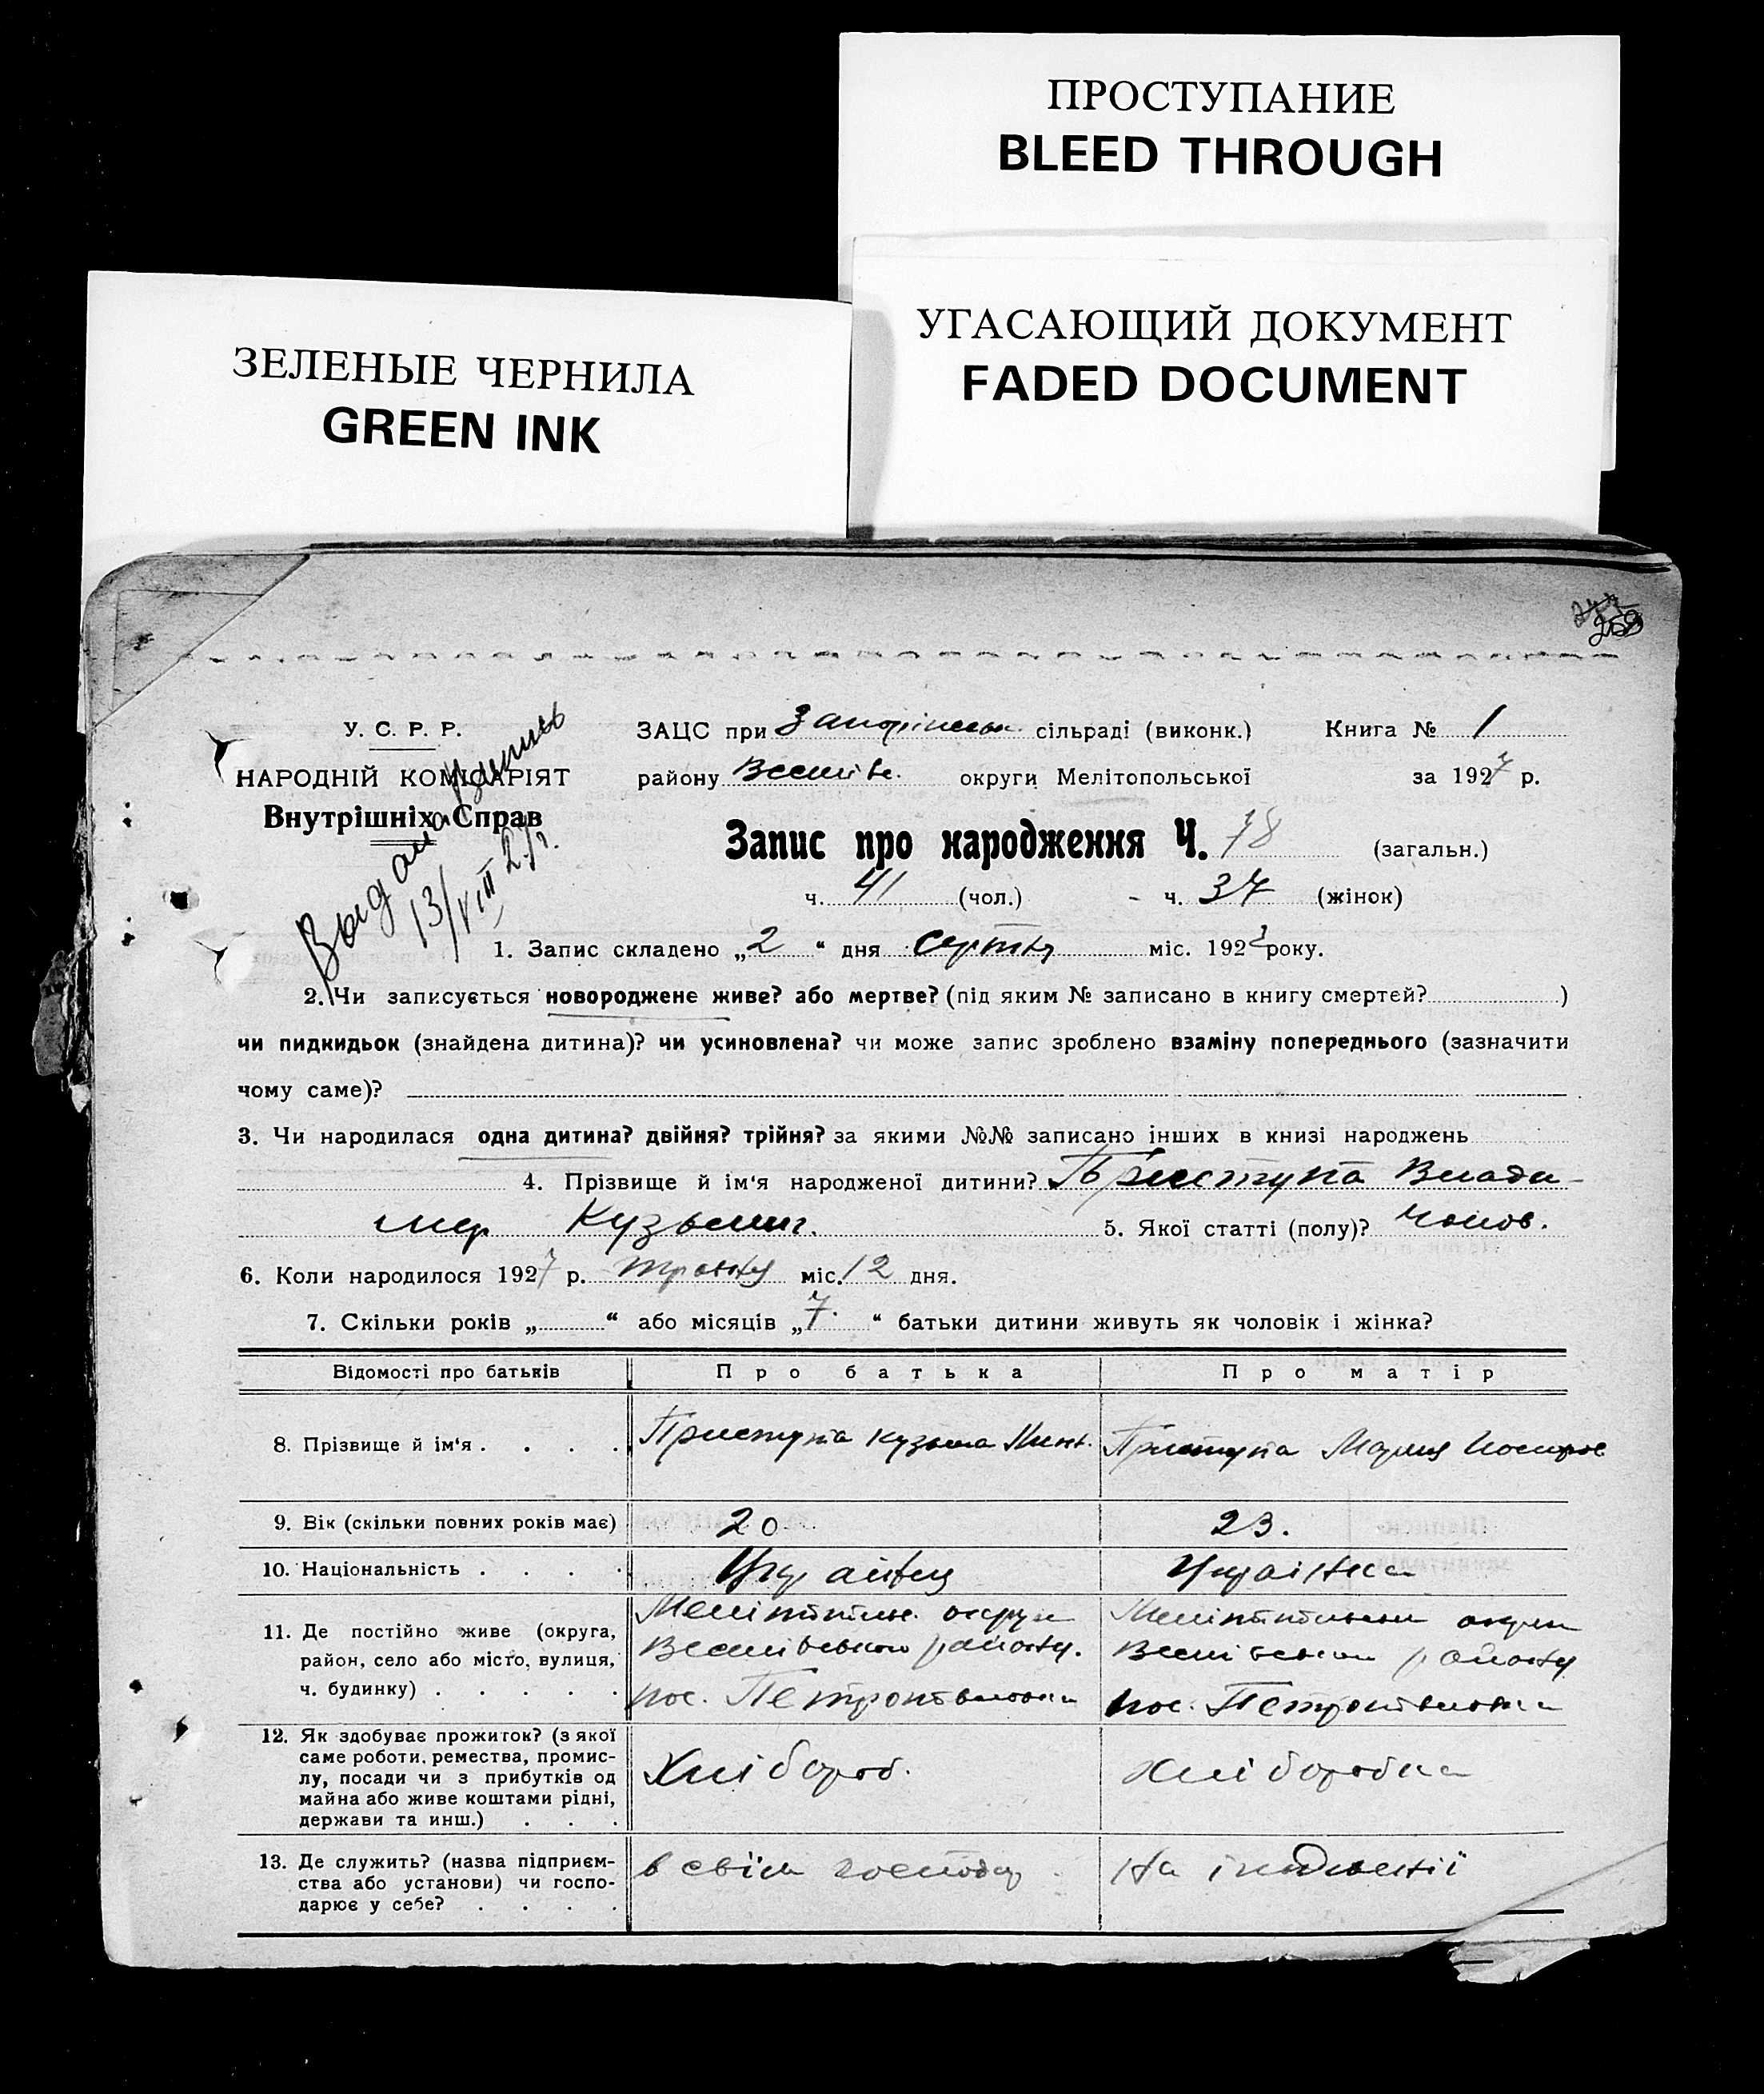 ПРОСТУПАНИЕ
BLEED THROUGH
УГАСАЮЩИЙ ДОКУМЕНТ
FADED DOCUMENT
ЗЕЛЕНЫЕ ЧЕРНИЛА
GREEN INK
259
У. С. Р. Р.
НАРОДНІЙ КОМІСАРІЯТ
Внутрішніх Справ
13/VIII 27р.
ЗАЦС при сільраді (виконк.) Книга № 1
району округи Мелітопольської за 1927 р.
Запис про народження Ч. 78 (загальн.)
ч. 41 (чол.) ч. 37 (жінок)
1. Запис складено „2“ дня серпня міс. 1927 року.
2. Чи записується новороджене живе? або мертве? (під яким № записано в книгу смертей? )
чи пидкидьок (знайдена дитина)? чи усиновлена? чи може запис зроблено взаміну попереднього (зазначити
чому саме)?
3. Чи народилася одна дитина? двійня? трійня? за якими №№ записано інших в книзі народжень
4. Прізвище й ім‘я народженої дитини? Приступа Влади-
мир Кузьмич. 5. Якої статті (полу)? Чолов.
6. Коли народилося 1927 р. міс. 12 дня.
7. Скільки років „ “ або місяців „7“ батьки дитини живуть як чоловік і жінка?
Відомості про батьків Про батька Про матір
8. Прізвище й ім‘я . . . . Приступа Кузьма Приступа Мария
9. Вік (скільки повних років має) 20 23.
10. Національність . . . . Українец Українка
11. Де постійно живе (округа,
район, село або місто, вулиця,
ч. будинку) . . . . .
Мелітопільс. округи Мелітопільськ округи
Веселівського району. Веселівськ району
пос. Петропавловка пос. Петропавловка
12. Як здобуває прожиток? (з якої
саме роботи, ремества, промис-
лу, посади чи з прибутків од
майна або живе коштами рідні,
держави та инш.) . . .
Хлібороб. Хліборобка
13. Де служить? (назва підприєм-
ства або установи) чи госпо-
дарює у себе? . . . .
в свїм господар На